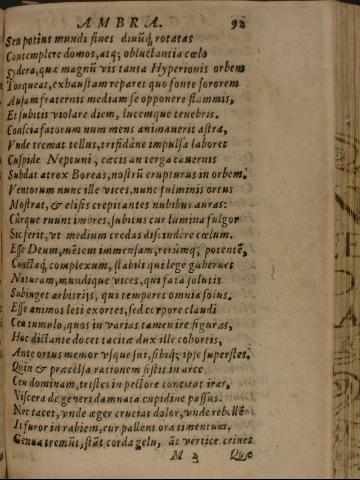 AMBRA. 92
Seu potius mundi fines diuûq; rotatas
Contemplere domos, atq; obluctantia cœlo
Sydera, quæ magnũ vis tanta Hyperionis orbem
Torqueat, exhaustam reparet quo fonte sororem
Ausam fraternis mediam se opponere flammis,
Et subitis violare diem, lucemque tenebris.
Conscia fatorum num mens animauerit astra,
Vnde tremat tellus, trifidâne impulsa laboret
Cuspide Neptuni, cæcis an terga cauernis
Subdat atrox Boreas, nostrũ erupturus in orbem.
Ventorum nunc ille vices, nunc fulminis ortus
Mostrat, & elisis crepitantes nubibus auras:
Cûrque ruunt imbres, subitus cur lumina fulgor
Succerit, vt medium credas discindere cœlum.
Esse Deum, mẽtem immensam, rerúmq; potentẽ,
Cunctaq; complexum, stabili qui lege gubernet
Naturam, mundique vices, qui fata solutis
Subiuget arbitrijs, qui temperet omnia solus.
Esse animos leti exortes, sed corpore claudi
Ceu tumulo, quos in varias tamen ire figuras,
Hoc dictante docet tacitæ dux ille cohortis,
Ante ortus memor vsque sui, sibiq; ipse superstes.
Quin & præcelsa rationem sistit in arce
Ceu dominam, tristes in pectore concitat iras,
Viscera degeneri damnata cupidine passus.
Nec tacet, vnde æger cruciat dolor, vnde rebellẽ
It furor in rabiem, cur pallent ora timentum,
Genua tremũt, stãt corda gelu, ãt vertice crines
M 3 Quæ